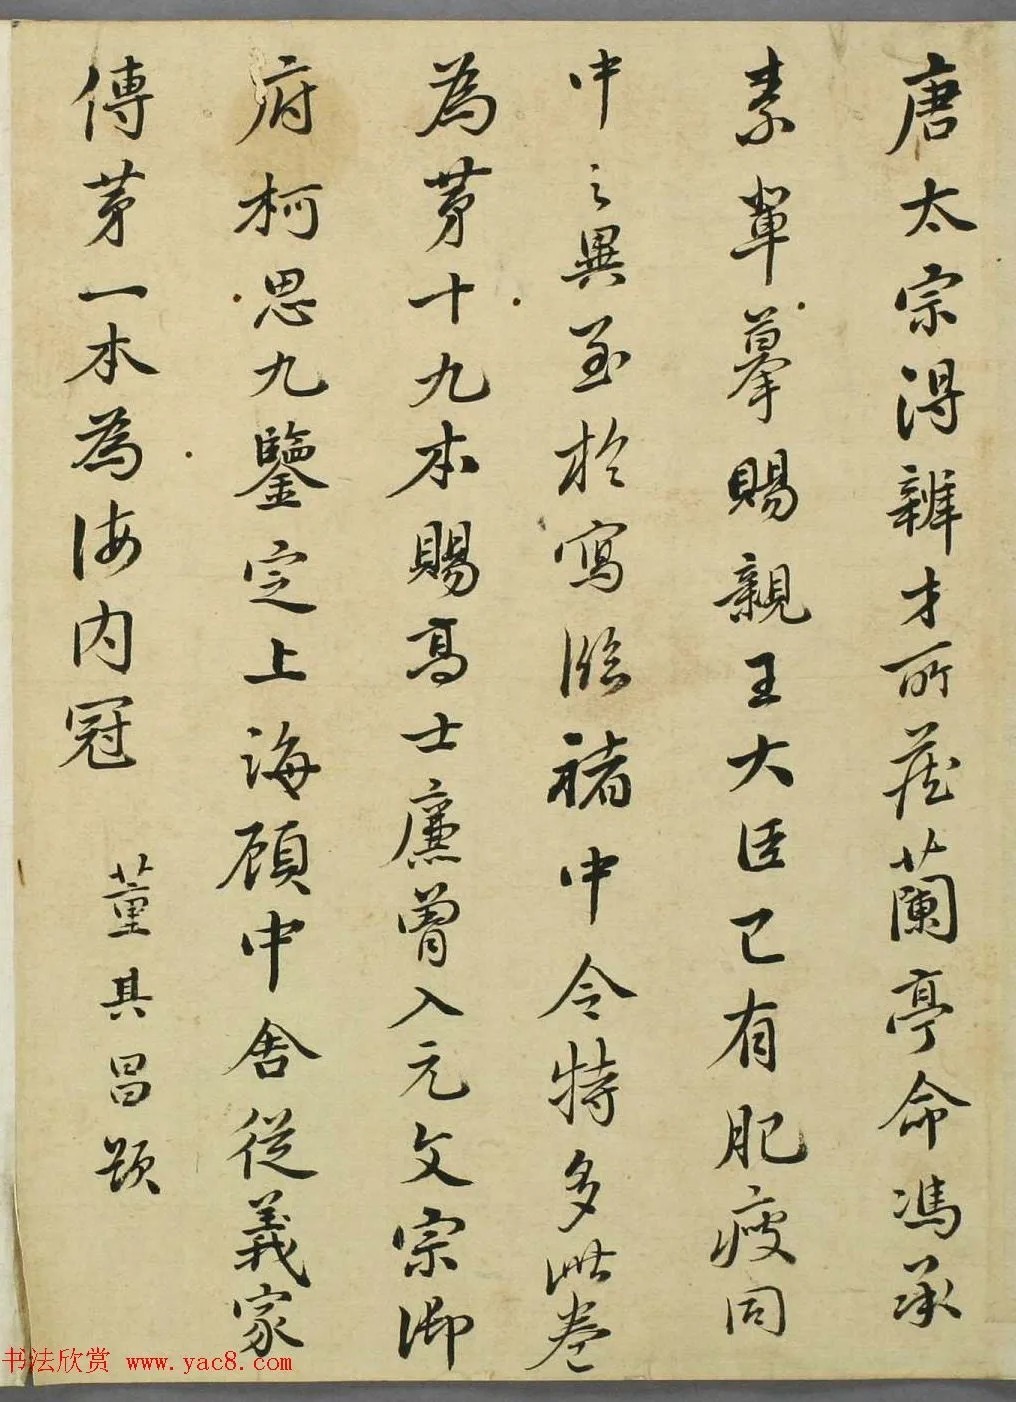 唐太宗得辨才所藏蘭亭命馮承
素輩摹賜親王大臣已有肥瘦同
中之異至於寫臨褚中令特多此卷
為苐十九本賜高士廉曾入元文宗御
府柯思九鑒定上海顧中舍從義家
傳苐一本為海内冠
董其昌題
书法欣赏 www.yac8.com